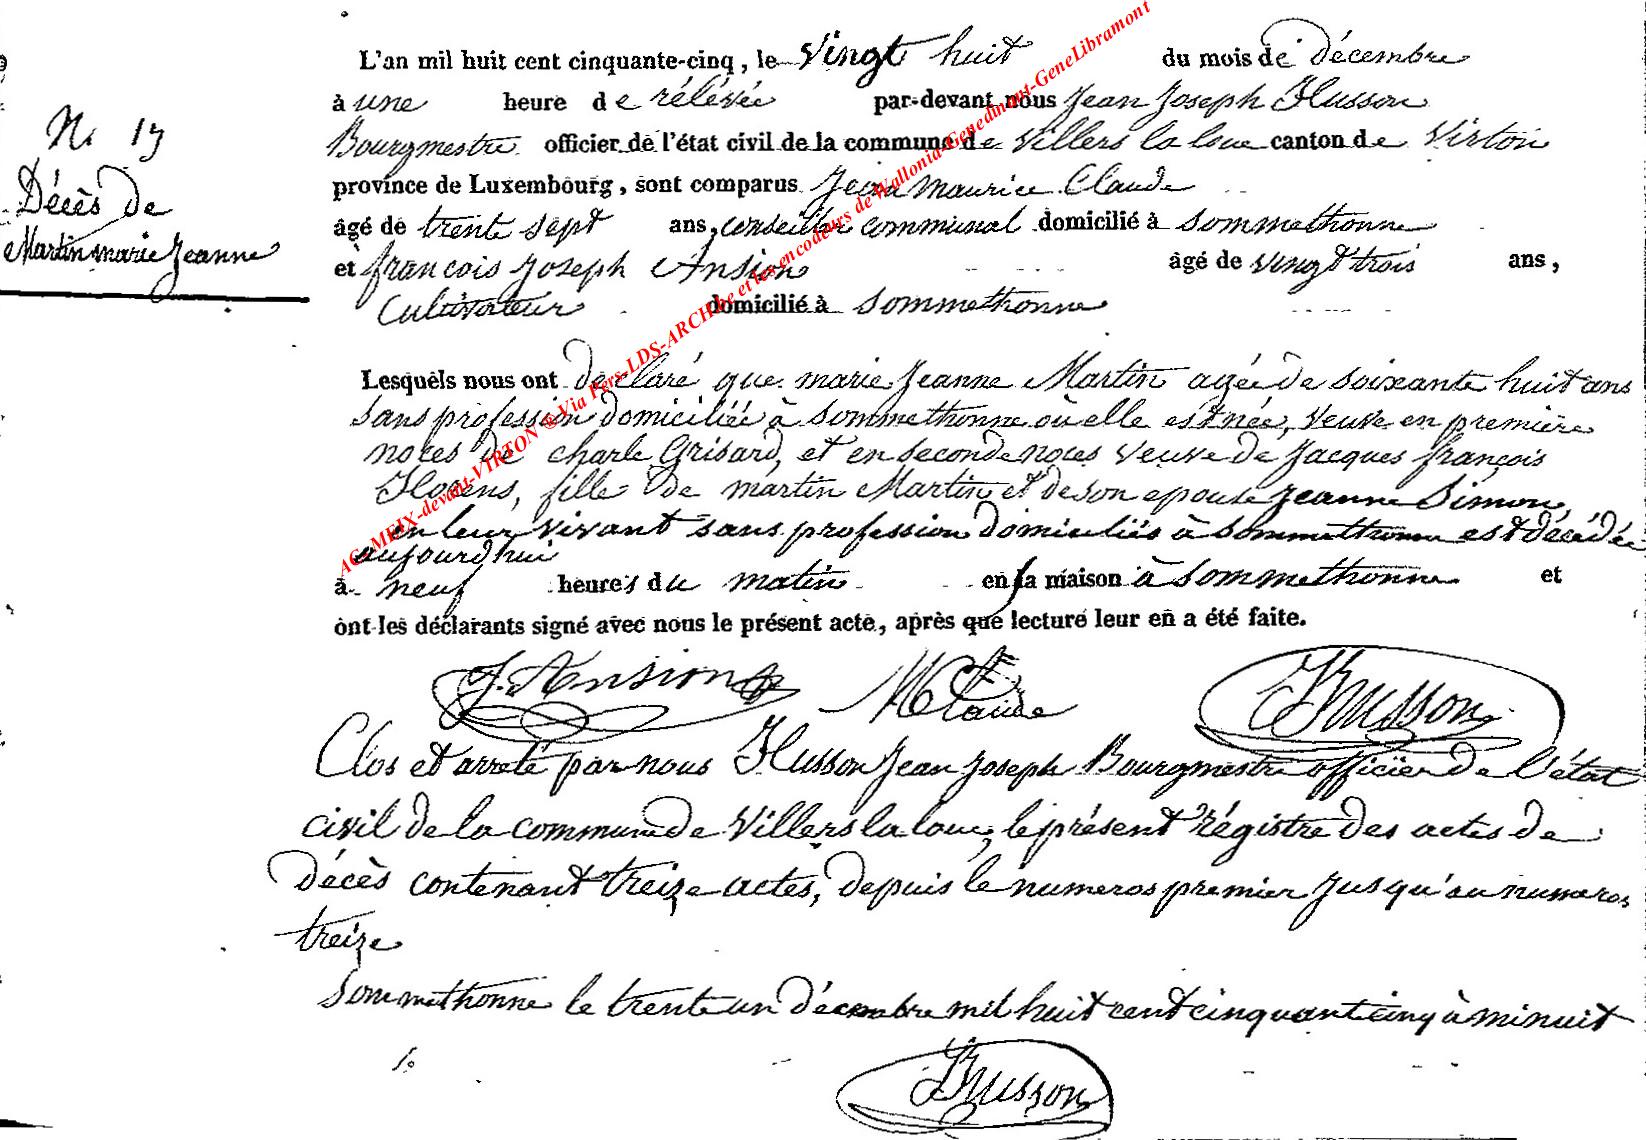 L'an mil huit cent cinquante-cinq, le vingt huit du mois de décembre
à une heure de rélévée par-devant nous Jean Joseph Husson
Bourgmestre officier de l'état civil de la commune de Villers la loue canton de Virton
province de Luxembourg, sont comparus Jean maurice Claude
âgé de trente sept ans, conseiller communal domicilié à Sommethonne
et françois Joseph Ansion âgé de vingt trois ans,
Cultivateur domicilié à Sommethonne
N° 13
Décès de
Martin marie Jeanne
Lesquels nous ont déclaré que marie Jeanne Martin agée de soixante huit ans
sans profession domiciliée à Sommethonne où elle est née, veuve en première
noces de charle Grisard, et en seconde noces veuve de Jacques françois
fille de martin Martin et de son epouse Jeanne Simon,
en leur vivant sans profession domiciliés à Sommethonne est décédée
aujourd'hui
à neuf heures du matin en sa maison à Sommethonne et
ont les déclarants signé avec nous le présent acte, après que lecture leur en a été faite.
J. Ansion M Claude Husson
Clos et arreté par nous Husson Jean Joseph Bourgmestre officier de l'état
civil de la commune de Villers la loue, le présent régistre des actes de
décès contenant treize actes, depuis le numeros premier jusqu'au numeros
treize
Sommethonne le trente un décembre mil huit cent cinquante cinq à minuit
Husson
AC-MEIX-devant-VIRTON ® Via Pers-LDS-ARCH.be et les encodeurs de Wallonia-Genedinant-GeneLibramont